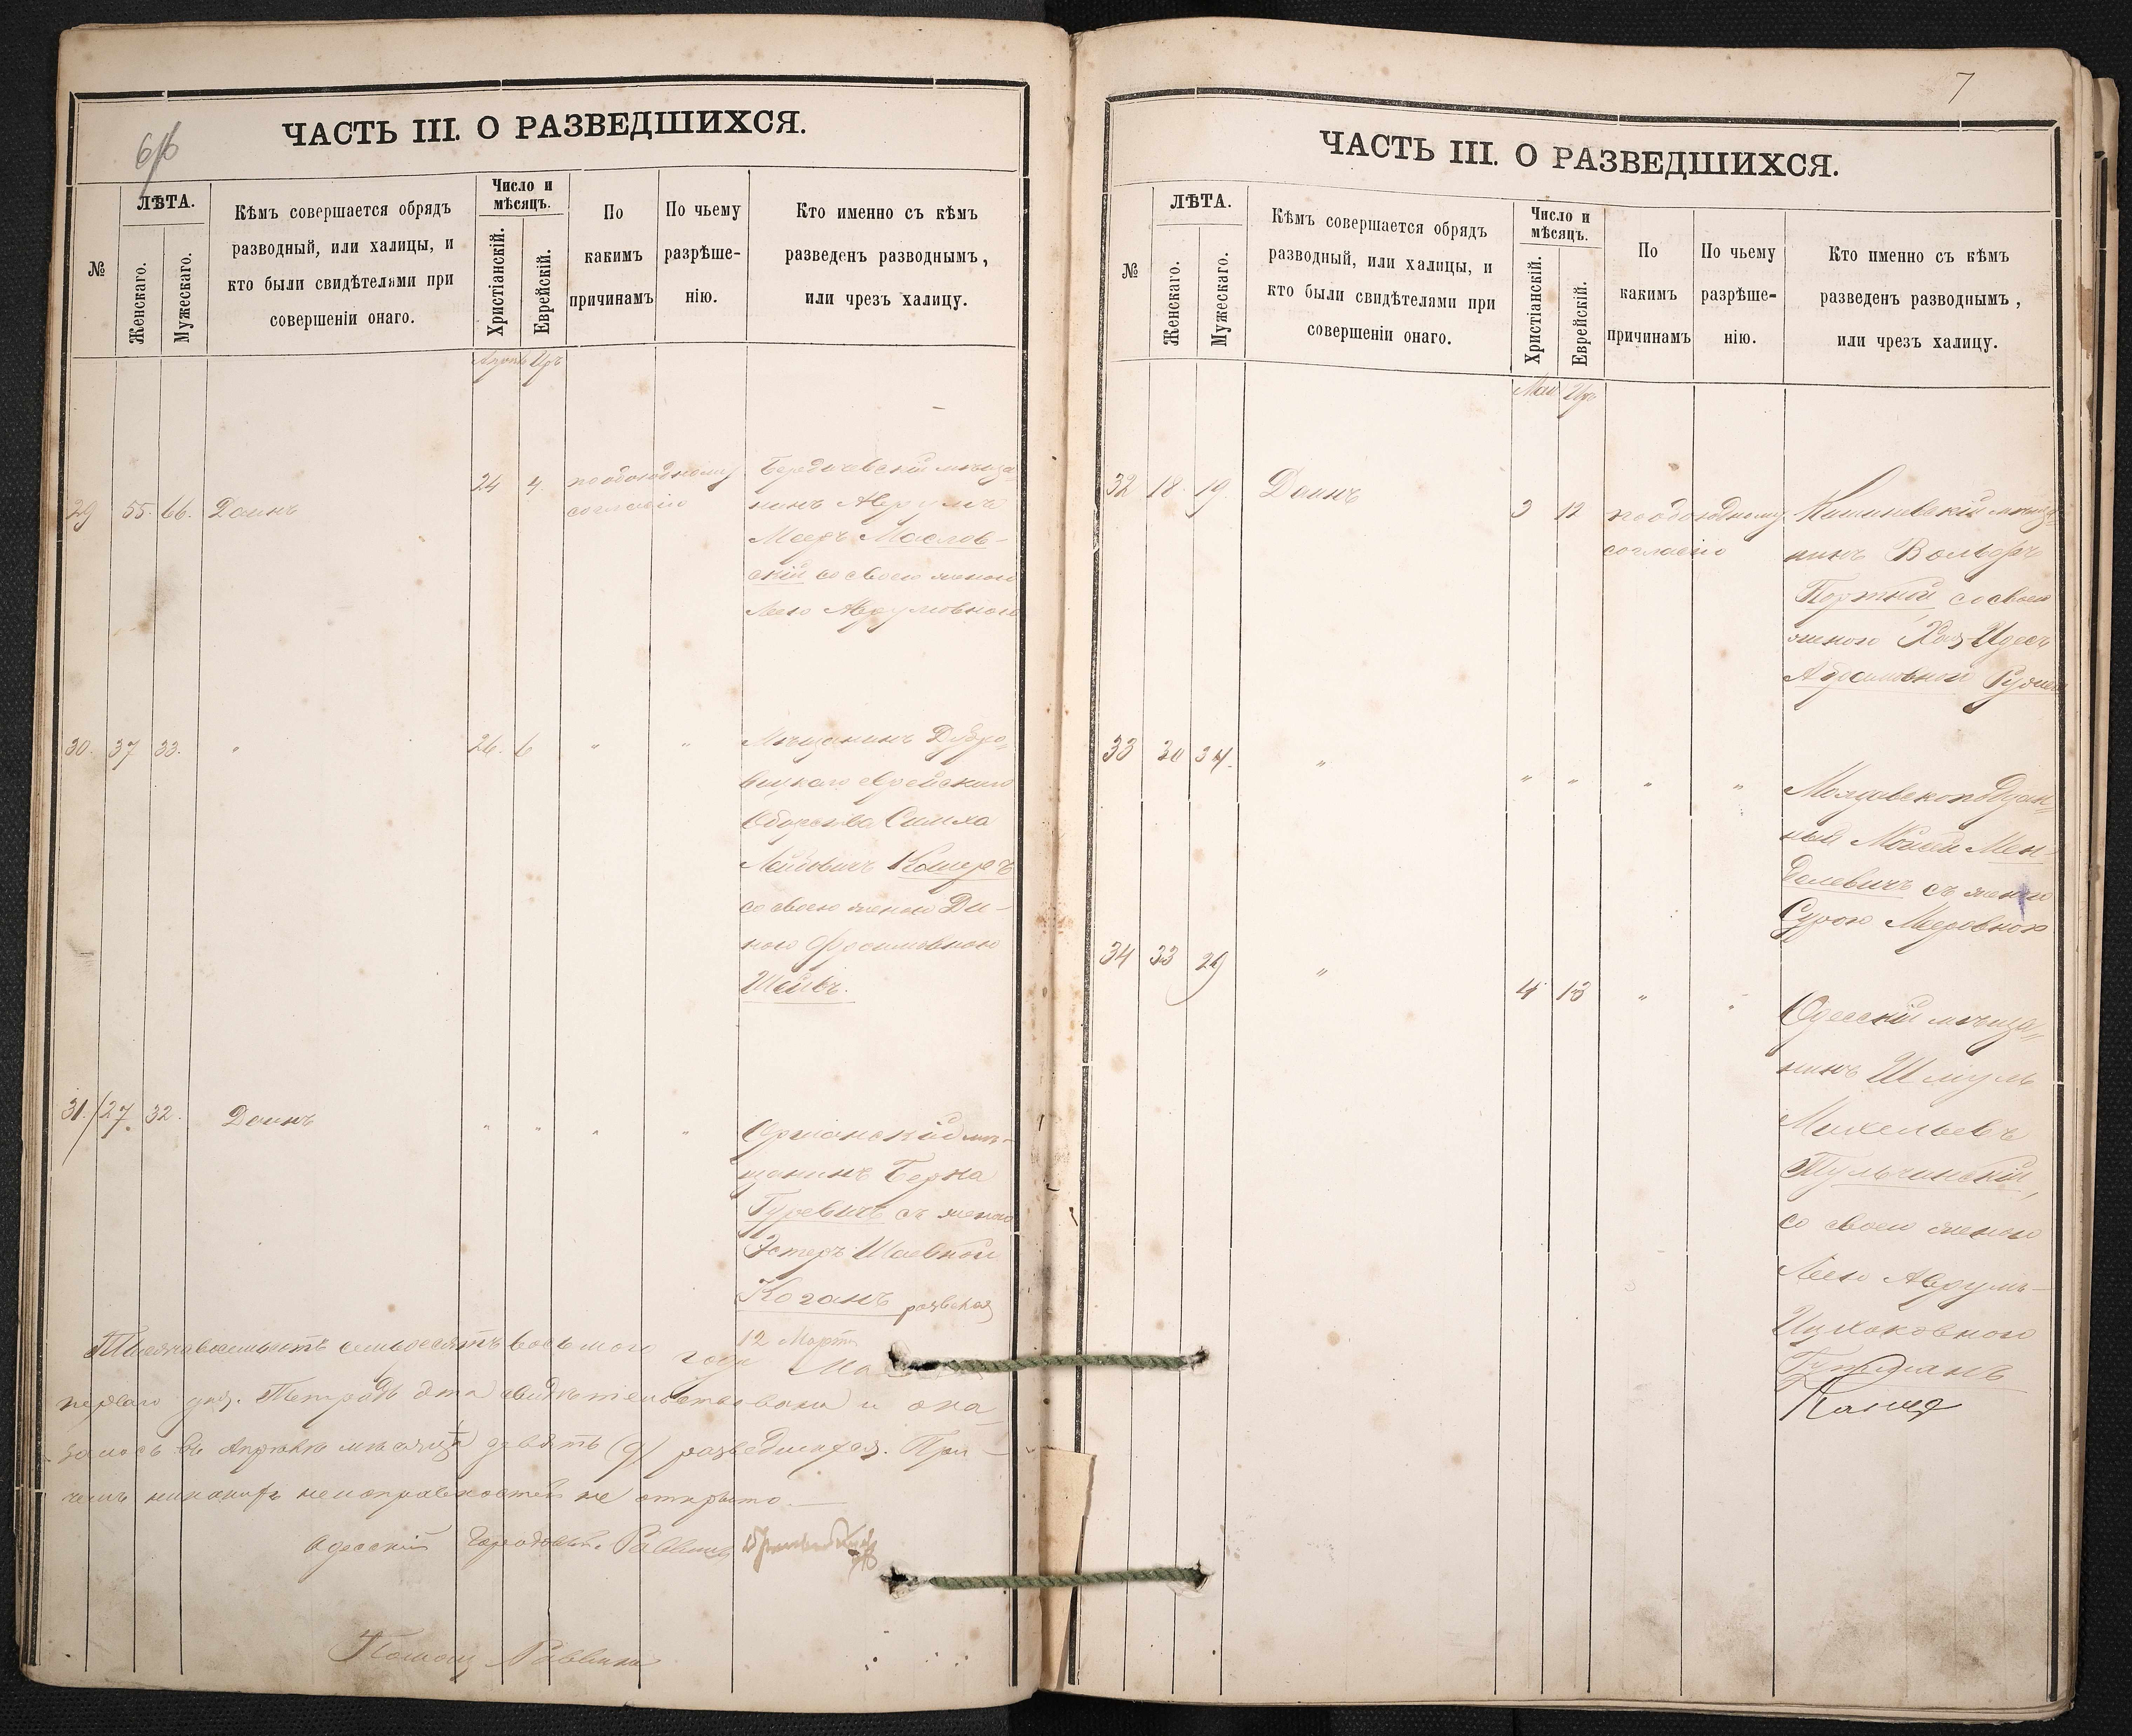 6/6
ЧАСТЬ III. О РАЗВЕДШИХСЯ.
№
ЛѢТА.
Женскаго.
Мужескаго.
Кѣмъ совершается обрядъ
разводный, или халицы, и
кто были свидѣтелями при
совершеніи онаго.
Число и
мѣсяцъ.
Христіанскій.
Еврейскій.
По
какимъ
причинамъ
По чьему
разрѣше-
нію.
Кто именно съ кѣмъ
разведенъ разводнымъ,
или чрезъ халицу.
29 55. 66. Даинъ
24 4
по обоюдному
согласію
Бердичевскій мѣща-
нинъ Аврумъ
Мееръ Маслов-
скій со своею женою
Леею Аврумовною
30. 37 33. "
26. 6 " "
Мѣщанинъ Дубро-
вицкаго еврейскаго
Общества Симха
Лейбовичъ
со своею женою Ди-
ною Фроимовною
31. 27. 32. Даинъ
" " " "
Оргіанскій мѣ-
щанинъ Берка
Гуревичъ съ женою
Эстеръ Шаевной
Коганъ
12 Марта
Тысяча восемьсотъ семьдесятъ восьмого года
перваго дня. Тетрадь эта свидѣтельствована и ока-
залось въ Апрѣлѣ мѣсяцѣ девять (9) разведшихся. При
чемъ никакихъ неисправностей не открыто.
Одесскій Городовой Раввинъ
Помощ Раввина
7
ЧАСТЬ III. О РАЗВЕДШИХСЯ.
№
ЛѢТА.
Женскаго.
Мужескаго.
Кѣмъ совершается обрядъ
разводный, или халицы, и
кто были свидѣтелями при
совершеніи онаго.
Число и
мѣсяцъ.
Христіанскій.
Еврейскій.
По
какимъ
причинамъ
По чьему
разрѣше-
нію.
Кто именно съ кѣмъ
разведенъ разводнымъ,
или чрезъ халицу.
Май
32 18. 19. Даинъ
3 12
по обоюдному
согласію
Кишиневскій мѣща-
нинъ Вольфъ
Портной со своею
женою Хая-Идесъ
Абрамовной
33 30 34. "
" " " "
Молдавскоподдан-
ный Мошей Мен-
делевичъ съ женою
Сурою Мееровною
34 33 29 "
4 13 " "
Одесскій мѣща-
нинъ Шмуль
Михелевъ
Тульчинскій,
со своею женою
Леею Аврумъ-
Ицхоковною
Гутманъ